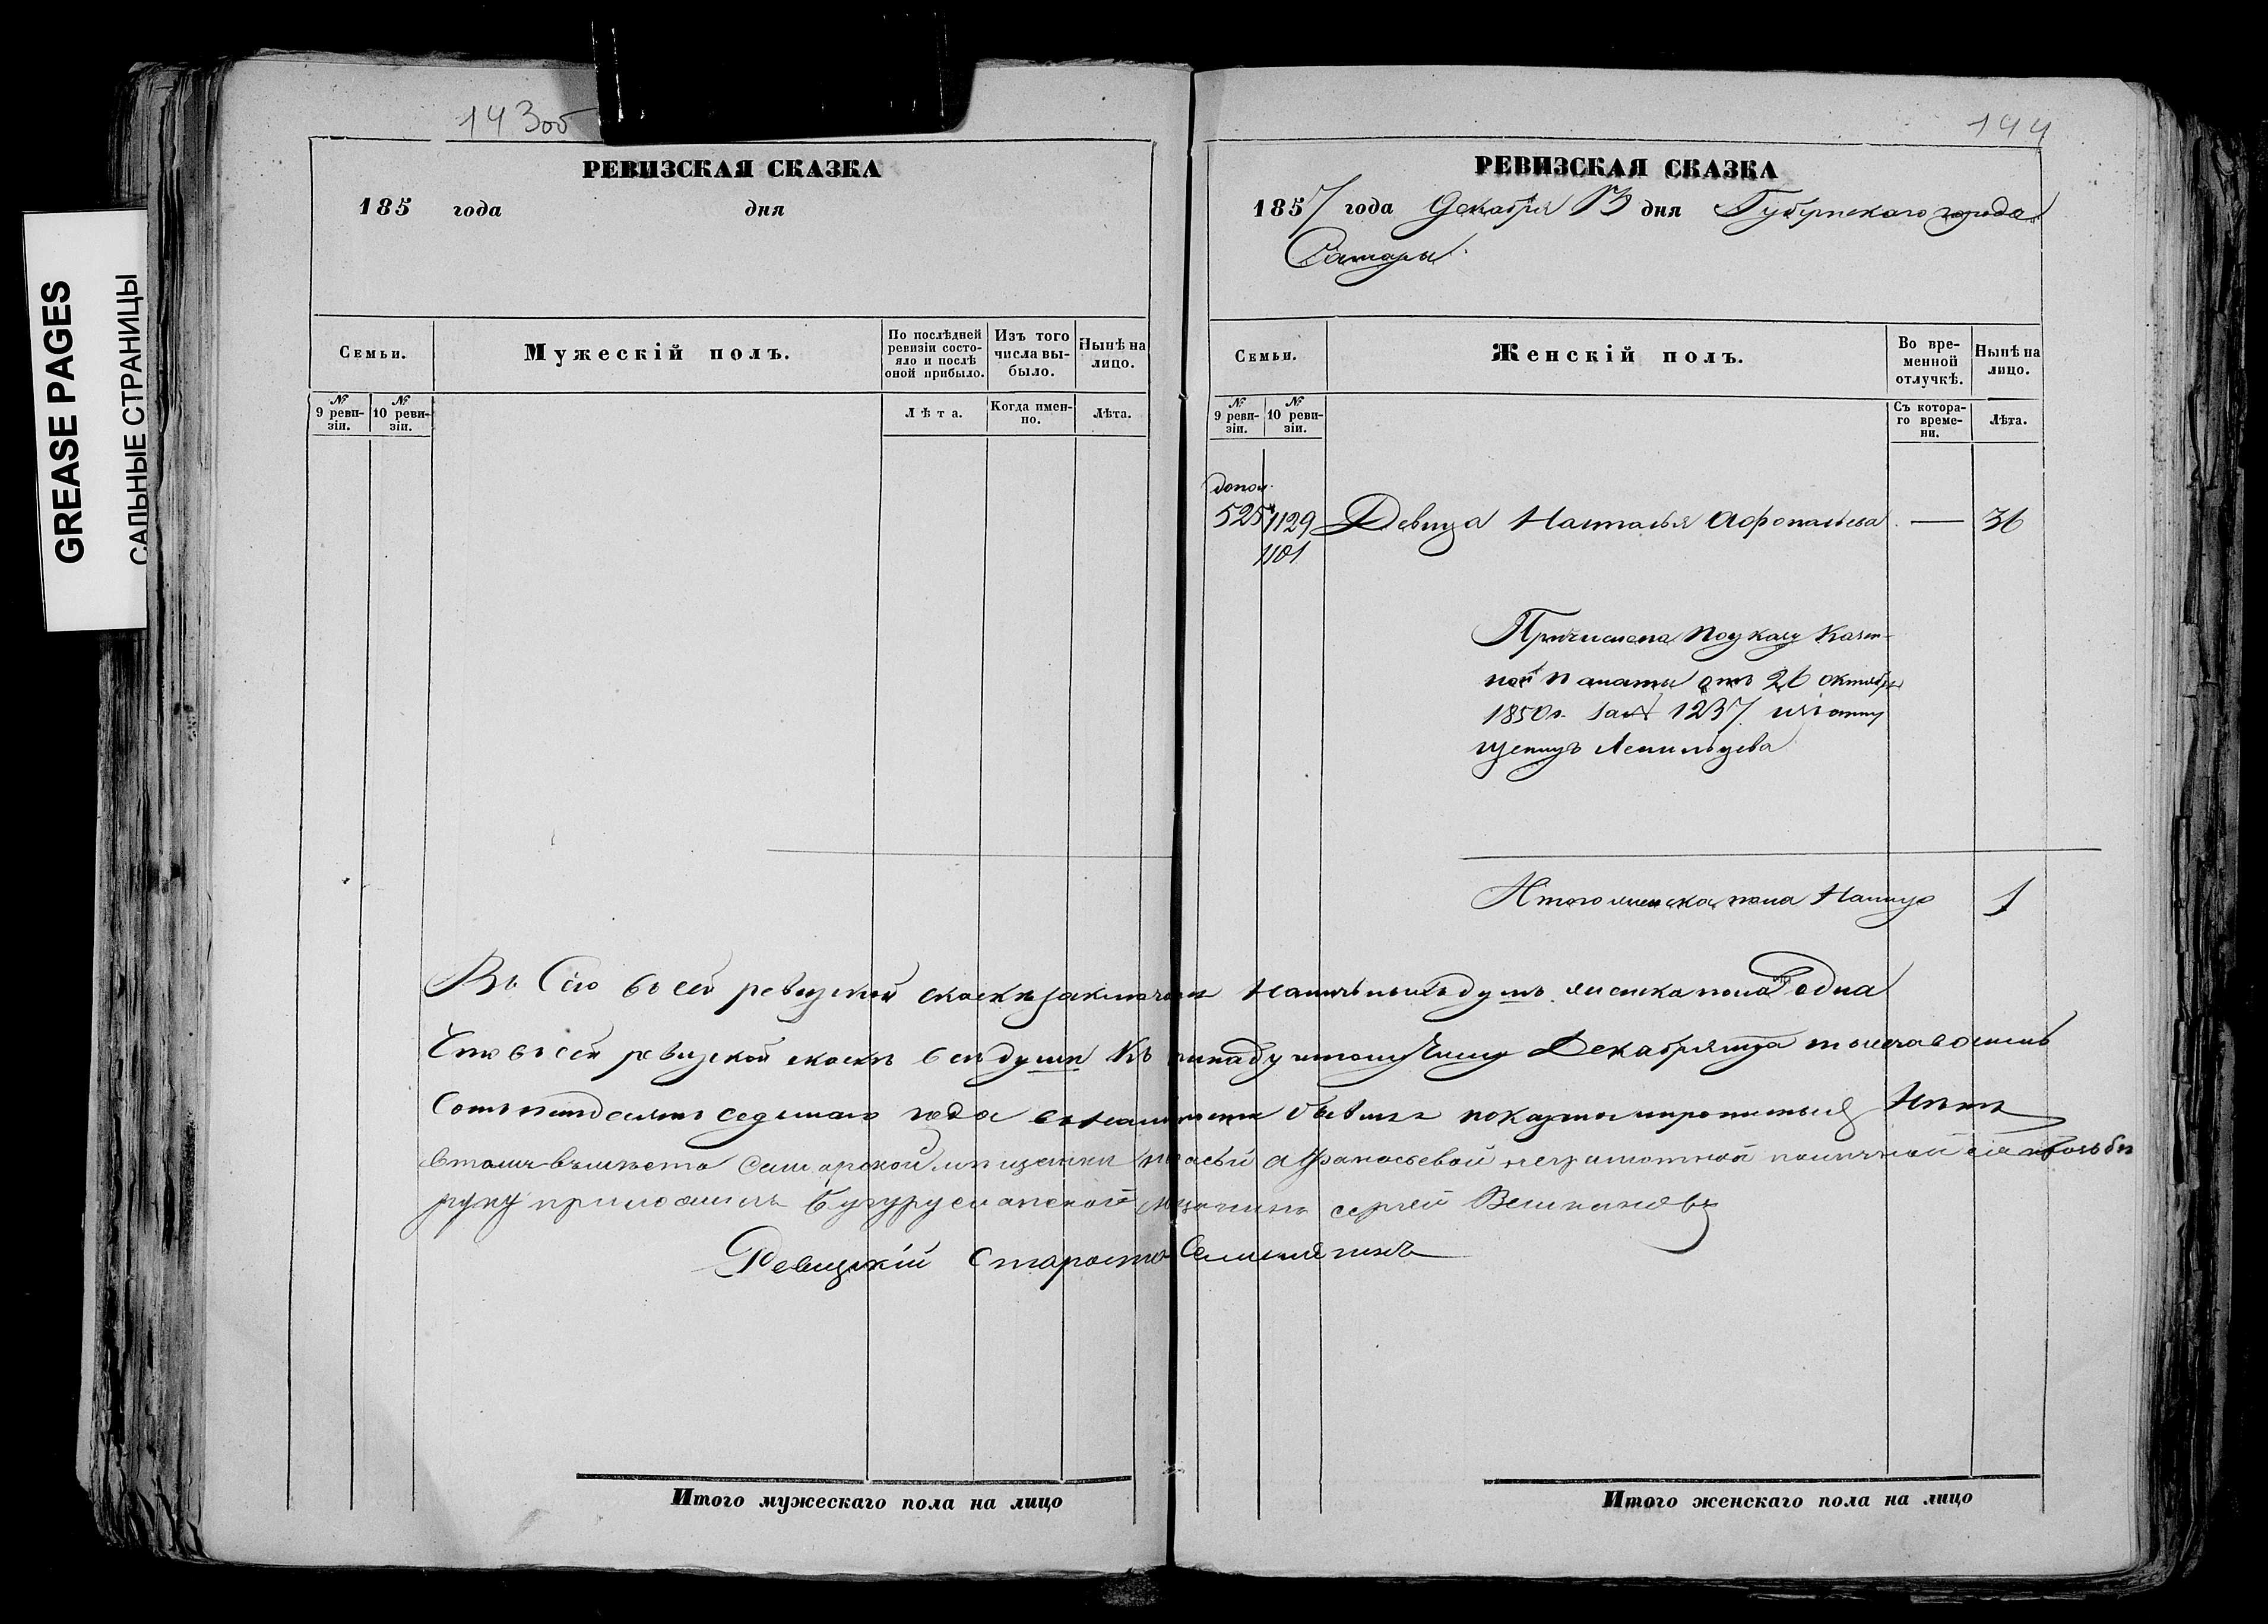 GREASE PAGES
САЛЬНЫЕ СТРАНИЦЫ
143об
РЕВИЗСКАЯ СКАЗКА
185 года дня
Семьи.
Мужескій полъ.
По послѣдней ревизіи состояло и послѣ оной прибыло.
Изъ того числа выбыло.
Нынѣ на лицо.
№ 9 ревизіи.
№ 10 ревизіи.
Лѣта.
Когда именно.
Лѣта.
Итого мужескаго пола на лицо
144
РЕВИЗСКАЯ СКАЗКА
1857 года Декабря 13 дня Губернскаго города
Самары
Семьи.
Женскій полъ.
Во временной отлучкѣ.
Нынѣ на лицо.
№ 9 ревизіи.
№ 10 ревизіи.
Съ котораго времени.
Лѣта.
допол.
525 1129 Девица Наталья Афонасьева — 36
1101
Причислена по указу Казен-
ной палаты отъ 26 октября
1850 г. за № 1237 изъ отпу
щенницъ
Итого женска пола Налицо 1
Въ Сей ревизской скаскѣ заключается Наличныхъ душъ женска пола одна
Что въ сей ревизской скаскѣ всѣ души Декабря тысяча восемь
Сотъ пятдесятъ седьмаго года показаны и пропитыя Нѣтъ
Самарской мещанки Афанасьевой неграмотной по личной ея прозьбѣ
руку приложилъ Бугурусланской мещанинъ сергей
Ревизкій Староста
Итого женскаго пола на лицо